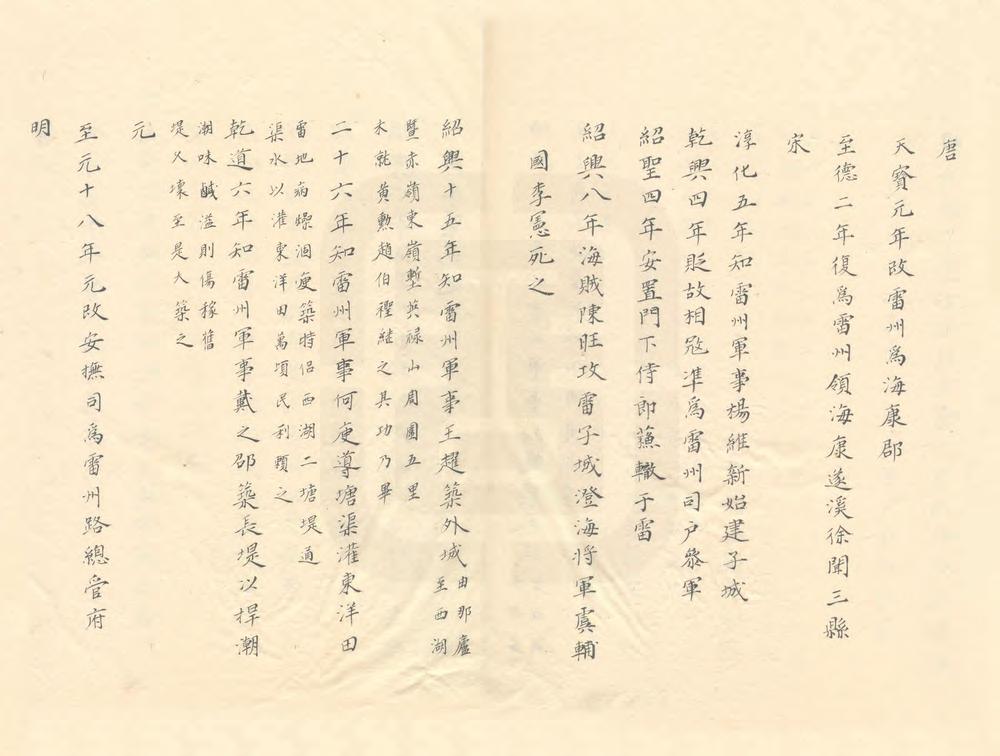 唐
天寳元年改雷州爲海康郡
至德二年復爲雷州領海康遂溪徐聞三縣
宋
淳化五年知雷州軍事楊維新始建子城
乾興四年貶故相寇準爲雷州司户叅軍
紹聖四年安置門下侍郎蘓轍于雷
紹興八年海賊陳旺攻雷子城澄海將軍虞輔
國李憲死之
紹興十五年知雷州軍事王趯築外城由那廬
至西湖
暨赤嶺東嶺塹英禄山周圍五里
未就黄勲趙伯檉継之其功乃畢
二十六年知雷州軍事何庾導塘渠灌東洋田
雷地病燥涸庾築特侣西湖二塘堤通
渠水以灌東洋田萬頃民利頼之
乾道六年知雷州軍事戴之邵築長堤以捍潮
潮味鹹溢則傷稼舊
堤久壞至是大築之
元
至元十八年元改安撫司爲雷州路總管府
明